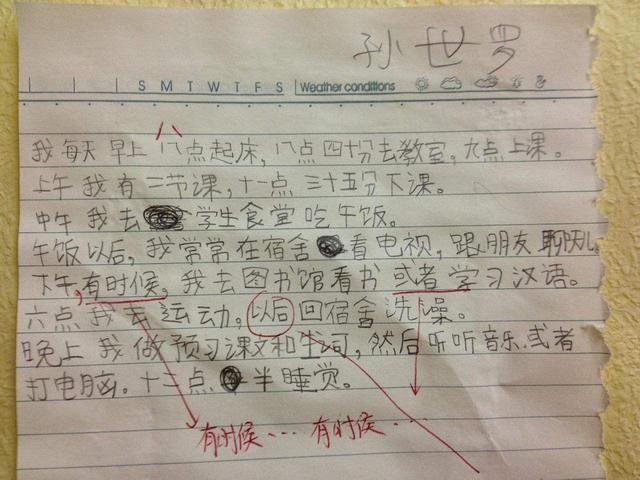 孙世罗
S M T W T F S Weather conditions
八
我每天早上八点起床,八点四十份去教室,九点上课。
上午我有二节课,十一点三十五分下课。
中午我去学生食堂吃午饭。
午饭以后,我常常在宿舍看电视,跟朋友聊天儿。
下午,有时候,我去图书馆看书或者学习汉语。
六点我去运动,以后回宿舍洗澡。
晚上我做预习课文和生词,然后听听音乐或者
打电脑。十二点半睡觉。
有时候… 有时候…